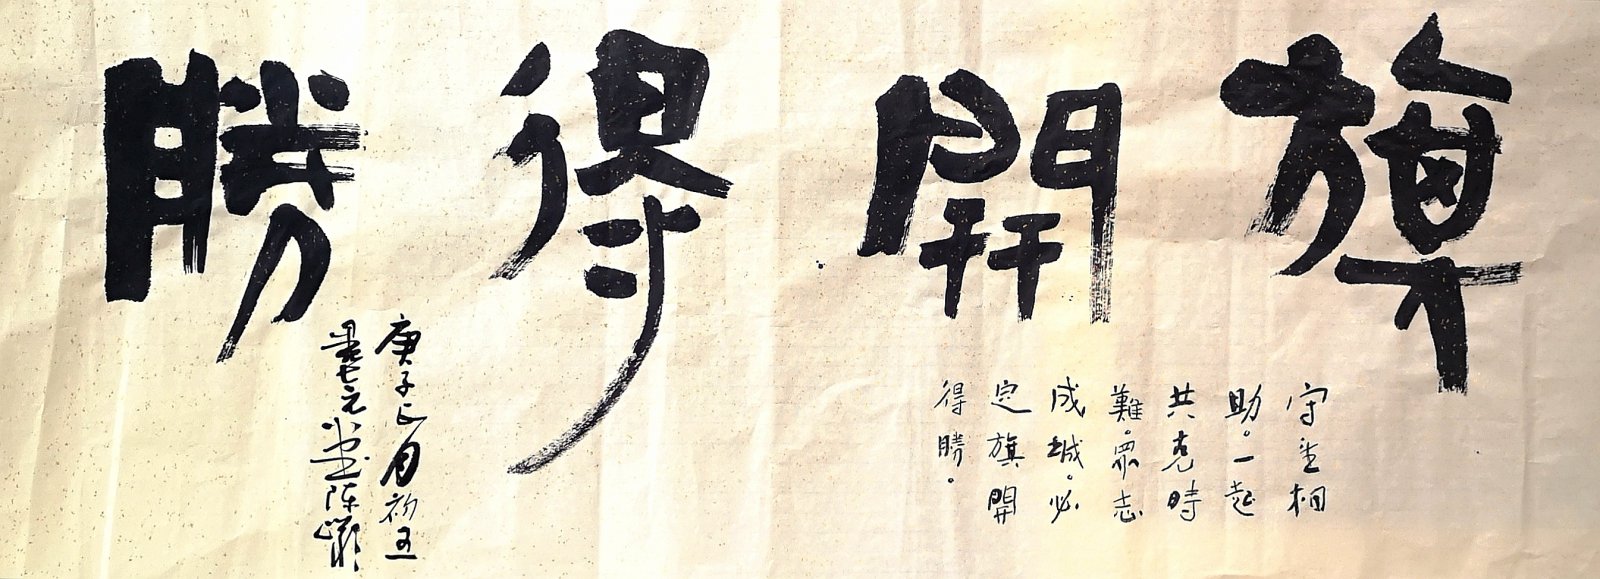 旗開得勝
守望相
助。一起
共克時
難。眾志
成城。必
定旗開
得勝。
庚子正月初五
元堂陈